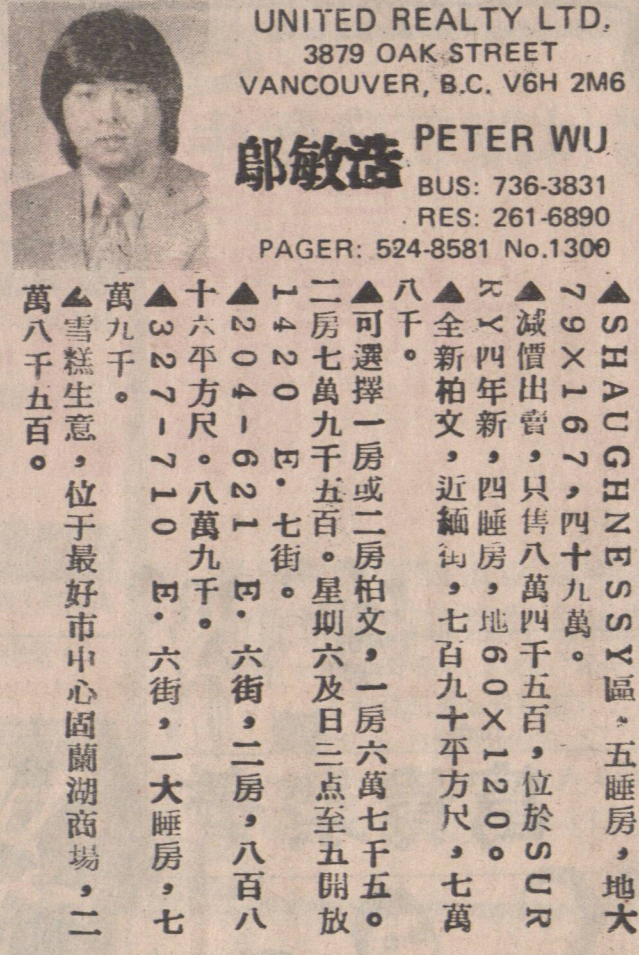 UNITED REALTY LTD.
3879 OAK STREET
VANCOUVER, B.C. V6H 2M6
鄔敏浩
PETER WU
BUS: 736-3831
RES: 261-6890
PAGER: 524-8581 No.1300
▲SHAUGHNESSY區，五睡房，地大
79×167，四十九萬。
▲減價出賣，只售八萬四千五百，位於SUR
REY四年新，四睡房，地60×120。
▲全新柏文，近緬街，七百九十平方尺，七萬
八千。
▲可選擇一房或二房柏文，一房六萬七千五。
二房七萬九千五百。星期六及日三点至五開放
1420 E. 七街。
▲204-621 E. 六街，二房，八百八
十六平方尺。八萬九千。
▲327-710 E. 六街，一大睡房，七
萬九千。
▲雪糕生意，位于最好市中心固蘭湖商場，二
萬八千五百。